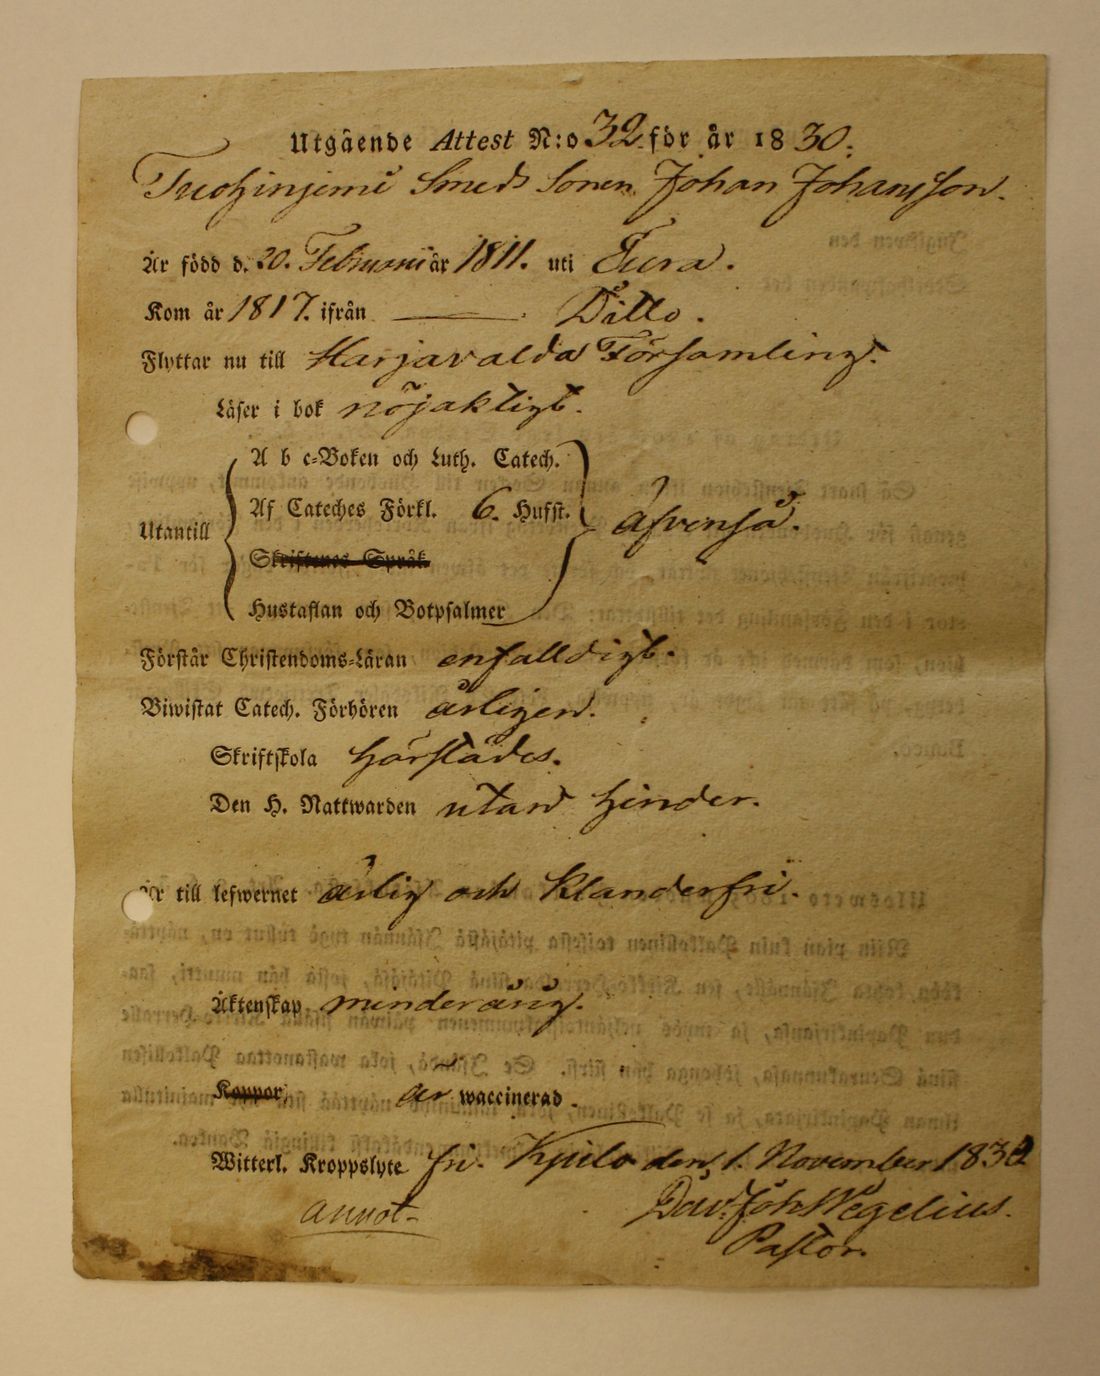 Utgående Attest N:o 32 för år 1830.
Smeds Sonen Johan Johansson.
Är född d. 20. Februarii år 1811. uti Eura.
Kom år 1817. ifrån — Ditto.
Flyttar nu till Harjavalda Församling.
Läser i bok nöjaktigt.
A b c-Boken och Luth. Catech.
Af Cateches Förkl. 6. Hufst.
Utantill äfvenså.
Skriftenes Språk
Hustaflan och Botpsalmer
Förstår Christendoms-Läran enfalldigt.
Biwistat Catech. Förhören årligen.
Skriftskola härstädes.
Den H. Nattwarden utan hinder.
Är till lefwernet ärlig och klanderfri.
Äktenskap minderårig.
Koppor, är waccinerad.
Witterl. Kroppslyte fri. Kjulo den 1. November 1830
Dav. Joh Wegelius.
Pastor.
annot.